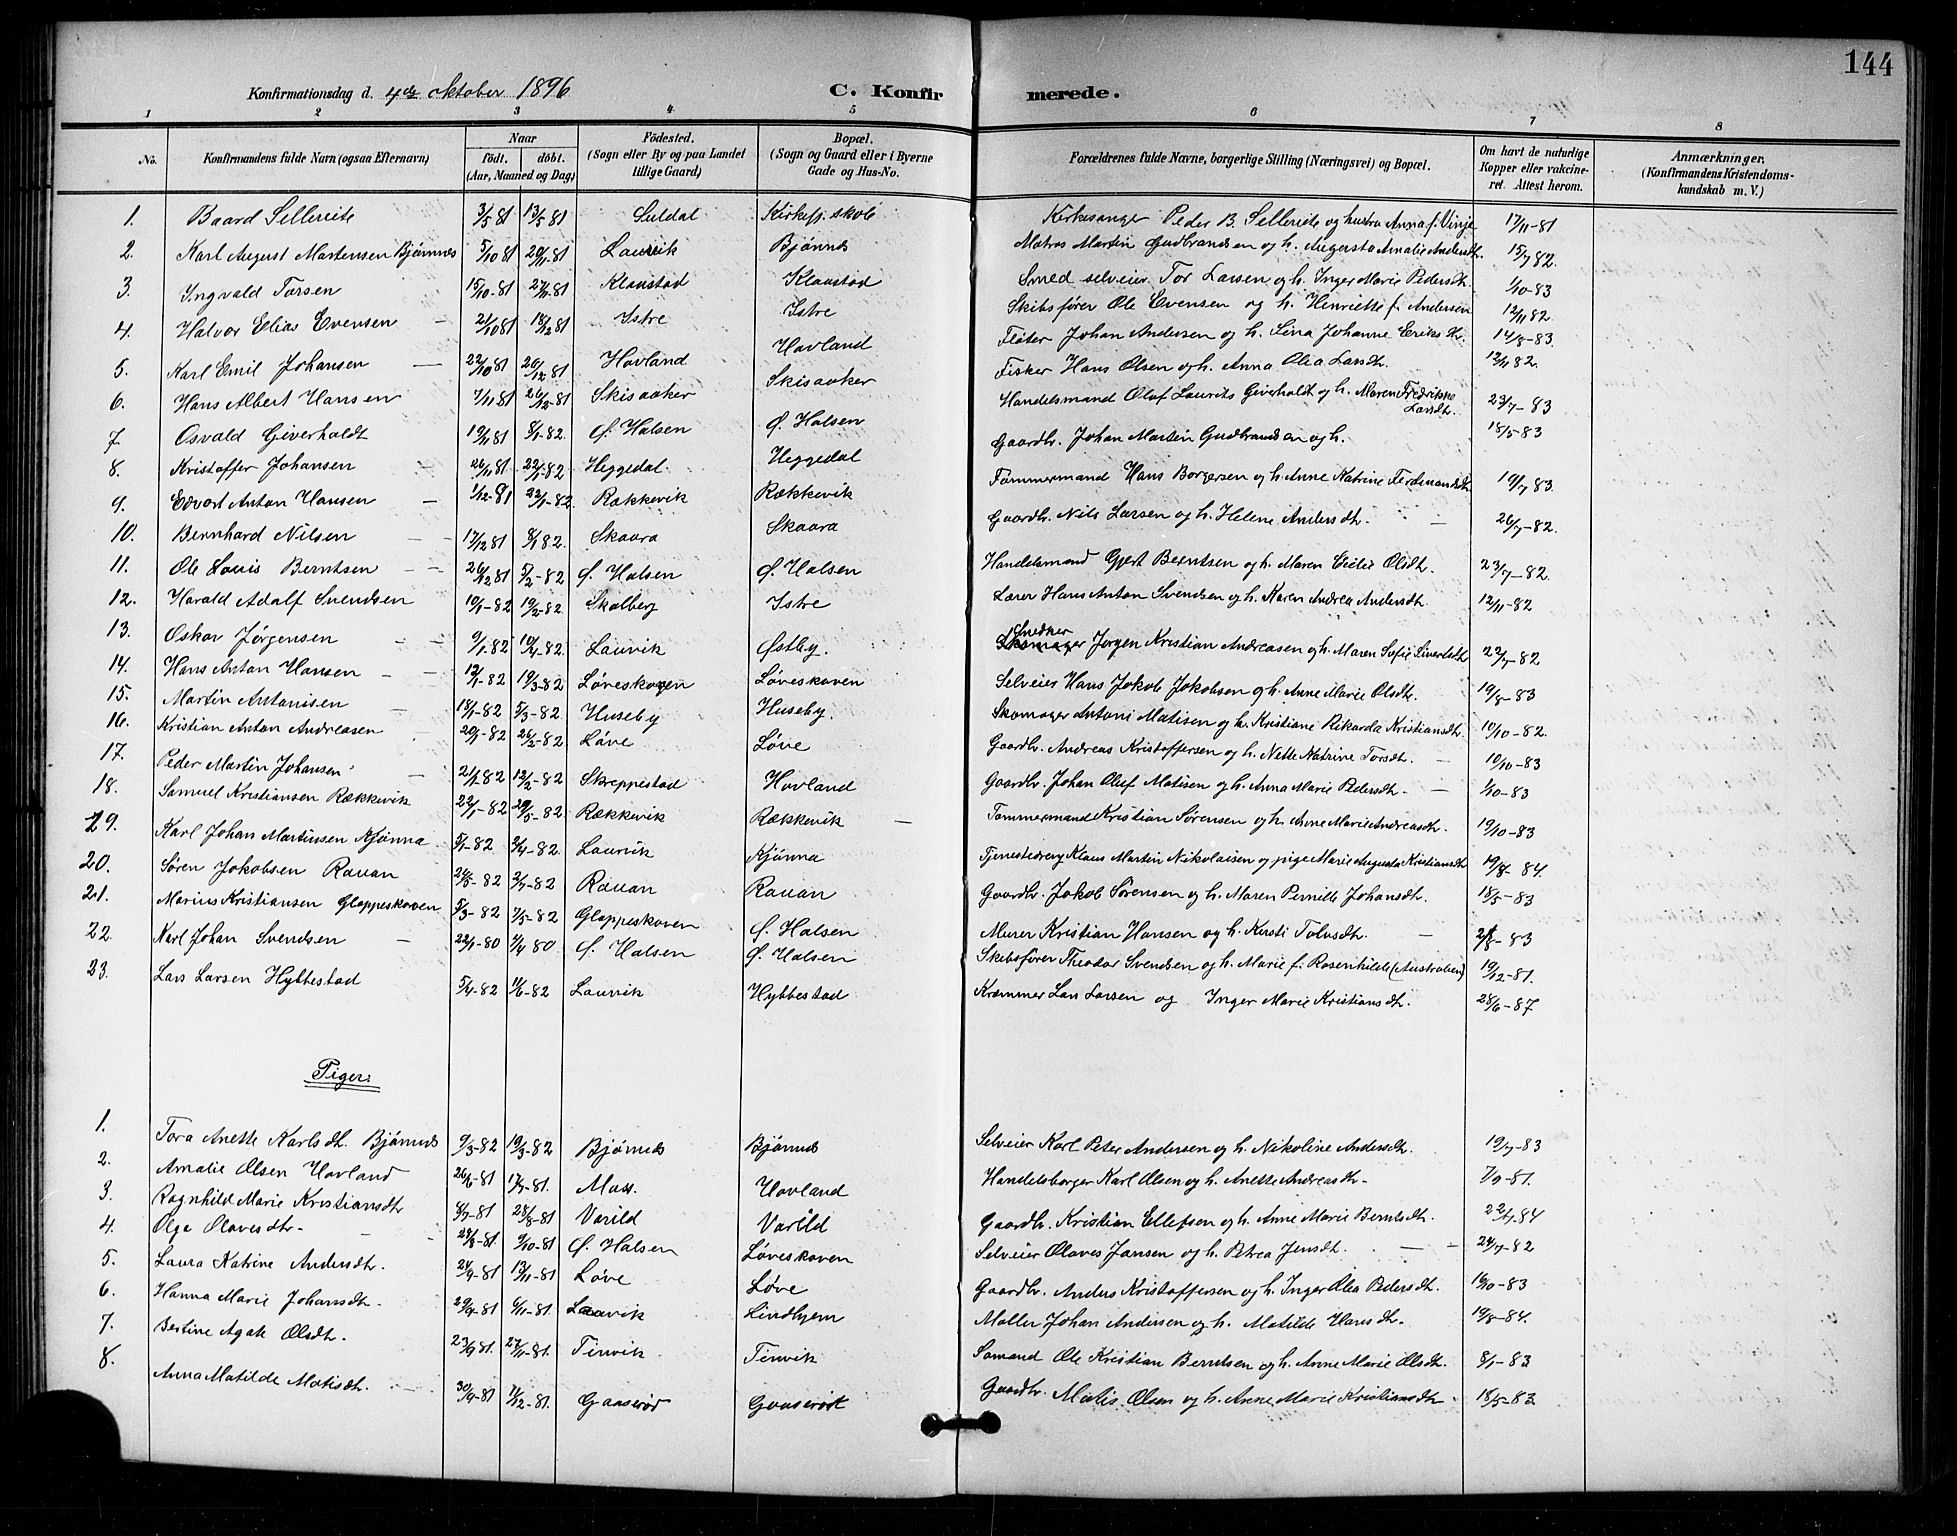 144
Konfirmationsdag d. 4de oktober 1896 C. Konfirmerede.
1 2 3 4 5 6 7 8
No. Konfirmandens fulde Navn (ogsaa Efternavn) Naar födt. döbt. (Aar, Maaned og Dag) Födested. (Sogn eller By og paa Landet tillige Gaard) Bopæl. (Sogn og Gaard eller i Byerne Gade og Hus-No. Forældrenes fulde Navne, borgerlige Stilling (Næringsvei) og Bopæl. Om havt de naturlige Kopper eller vakcineret. Attest herom. Anmærkninger. (Konfirmandens Kristendomskundskab m. V.)
1. Baard Sellereite 3/5 81 13/5 81 Suldal Kirkesp. skole Kirkesanger Peder B. Sellereite og hustru Anna f. Vinje 17/11-81
2. Karl August Martensen Bjønnes 5/10 81 20/11-81 Laurvik Bjønnes Matros Martin Gudbrandsen og h. Augusta Amalie Andersdt. 15/7 82.
3. Ingvald Torsen 15/10-81 27/11-81 Klaustad Klaastad Smed selveier Tor Larsen og h. Inger Marie Pedersdt. 1/10-83
4. Halvor Elias Evensen 2/10 81 18/12 81 Istre Istre Skibsfører Ole Evensen og h. Henriette f. Andersen 12/11 82.
5. Karl Emil Johansen 22/10 81 26/12 81 Hovland Hovland Fløter Johan Andersen og h. Lina Johanne Eriksdt. 14/8-83.
6. Hans Albert Hansen 7/11 81 26/12-81 Skisaaker Skisaaker Fisker Hans Olsen og h. Anna Olea Larsdt. 12/11 82.
7. Osvald Giverholdt 19/11 81 8/1-82. Ø. Halsen Ø. Halsen Handelsmand Oluf Laurits Giverholdt og h. Maren Fredrikke Larsdt. 23/7-83
8. Kristoffer Johansen 26/11 81 22/1-82 Heggedal. Heggedal Gaardbr. Johan Martin Gudbrandsen og h. 18/5-83
9. Edvart Anton Hansen 1/12-81 22/1-82. Rækkevik Rækkevik Tømmermand Hans Borgersen og h. Anne Katrine Ferdinandsdt. 19/7 83.
10. Bernhard Nilsen 17/12 81 8/1 82. Skaara Skaara Gaardbr. Nils Larsen og h. Helene Andersdt. 26/7-82.
11. Ole Louis Berntsen 26/12 81 5/2-82 Ø. Halsen Ø. Halsen Handelsmand Gjert Berntsen og h. Maren Eidie Olsdt. 23/7-82.
12. Harald Adolf Svendsen 10/1-82 19/2-82. Skalberg Istre Lærer Hans Anton Svendsen og h. Karen Andrea Andersdt. 12/11-82
13. Oskar Jørgensen 9/1-82 10/4-82. Laurvik Østby. Snedker Jørgen Kristian Andreasen og h. Maren Sofie Sivertsdt. 22/7-82
14. Hans Anton Hansen 12/1-82 19/3-82 Løveskogen Løveskoven Selveier Hans Jakob Jakobsen og h. Anne Marie Olsdt. 19/8-83
15. Martin Antonisen 18/1-82 5/3-82. Huseby Huseby. Skomager Antoni Matisen og h. Kristiane Rikarda Kristiansdt. 10/10-82.
16. Kristian Anton Andreasen 20/1-82 26/2-82 Løve Løve Gaardbr. Andreas Kristoffersen og h. Nette Katrine Torsdt. 10/10-83
17. Peder Martin Johansen 21/1 82 12/2-82 Skreppestad Hovland Gaardbr. Johan Oluf Matisen og h. Anna Marie Pedersdt. 1/10-83
18. Samuel Kristiansen Rækkevik 22/1-82 29/5-82 Rækkevik Rækkevik Tømmermand Kristian Sørensen og h. Anne Marie Andreasdt. 19/10-83
19. Karl Johan Martinsen Kjønna 5/1-82 2/4-82. Laurvik Kjønna Tjenestedreng Klaus Martin Nikolaisen og pige Marie Augusta Kristiansdt 19/8-84.
20. Søren Jakobsen Rauan 24/5-82 2/7-82 Rauan Rauan Gaardbr. Jakob Sørensen og h. Maren Pernille Johansdt. 18/5-83
21. Marius Kristiansen Gloppeskoven 5/3-82 7/5-82 Gloppeskoven Ø. Halsen Murer Kristian Hansen og h. Kirsti Tolvsdt. -83
22. Karl Johan Svendsen 22/1-80 2/4 80 Ø. Halsen Ø. Halsen Skibsfører Theodor Svendsen og h. Marie f. Rosenkilde (Australien) 19/12-81.
23. Lars Larsen Hybbestad 5/4-82 11/6-82 Laurvik Hybbestad Kræmmer Lars Larsen og Inger Marie Kristiansdt. 28/6-87
Piger:
1. Tora Anette Karlsdt. Bjønnes 9/3-82 19/3-82 Bjønnes Bjønnes Selveier Karl Peter Andersen og h. Nikoline Andersdt. 19/7-83
2. Amalie Olsen Hovland 26/6-81 17/7-81. Moss. Hovland Handelsborger Karl Olsen og h. Anette Andreasdt. 7/9-81.
3. Ragnhild Marie Kristiansdt 8/7-81 28/8-81 Varild Varild Gaardbr. Kristian Ellefsen og h. Anne Marie Berntsdt. 22/7-84
4. Olga Olavesdt. 29/8-81 9/10-81 Ø. Halsen Løveskoven Selveier Olaves Jansen og h. Petrea Jensdt. 24/7-82
5. Laura Katrine Andersdt. 24/9-81 13/11-81 Løve Løve Gaardbr. Anders Kristoffersen og h. Inger Olea Pedersdt. 10/10-83
6. Hanna Marie Johansdt. 29/9-81 6/11-81. Laurvik Lindhjem Møller Johan Andersen og h. Matilde Haresdt. 19/8-84.
7. Bertine Agate Olsdt. 23/9 81. 27/11-81. Tenvik Tenvik Sømand Ole Kristian Berntsen og h. Anne Marie Olsdt. 8/1-83
8. Anna Matilde Matisdt. 30/9-81 11/12-81. Gaaserød Gaaserød Gaardbr. Matis Olsen og h. Anne Marie Kristiansdt 18/5-83